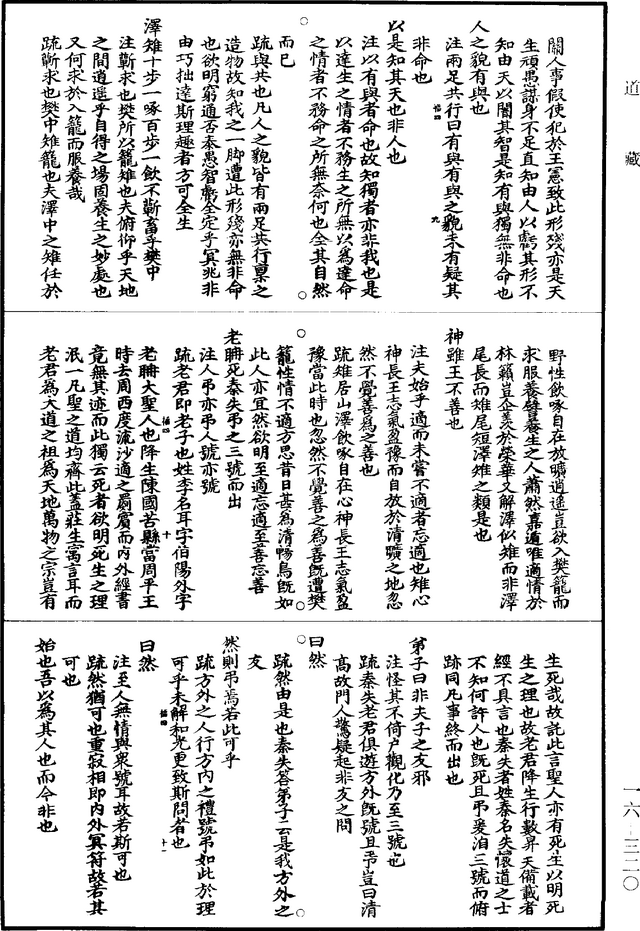 道藏
關人事假使犯於王憲致此形殘亦是天
生頑愚謀身不足直知由人以虧其形不
知由天以闇其智是知有與獨無非命也
人之貌有與也
注兩足共行曰有與有與之貌未有疑其
非命也
以是知其天也非人也
注以有與者命也故知獨者亦非我也是
以達生之情者不務生之所無以為達命
之情者不務命之所無奈何也全其自然
而已
疏與共也凡人之貌皆有兩足共行稟之
造物故知我之一脚遭此形殘亦無非命
也欲明窮通否泰愚智虧全定乎冥兆非
由巧拙達斯理趣者方可全生
澤雉十步一啄百步一飲不蘄畜乎樊中
注蘄求也樊所以籠雉也夫俯仰乎天地
之間逍遥乎自得之場固養生之妙處也
又何求於入籠而服養哉
疏蘄求也樊中雉籠也夫澤中之雉任於
野性飲啄自在放曠逍遥豈欲入樊籠而
求服養譬養生之人蕭然嘉遁唯適情於
林籟豈企羨於榮華又解澤似雉而非澤
尾長而雉尾短澤雉之類是也
神雖王不善也
注夫始乎適而未嘗不適者忘適也雉心
神長王志氣盈豫而自放於清曠之地忽
然不覺善為之善也
疏雉居山澤飲啄自在心神長王志氣盈
豫當此時也忽然不覺善之為善既遭樊
籠性情不適方思昔日甚為清暢鳥既如
此人亦宜然欲明至適忘適至善忘善
老聃死秦失弔之三號而出
注人弔亦弔人號亦號
疏老君即老子也姓李名耳字伯陽外字
老聃大聖人也降生陳國苦縣當周平王
時去周西度流沙適之罽賓而内外經書
竟無其迹而此獨云死者欲明死生之理
泯一凡聖之道均齊此蓋莊生寓言耳而
老君為大道之祖為天地萬物之宗豈有
生死哉故託此言聖人亦有死生以明死
生之理也故老君降生行數昇天備載者
經不具言也秦失者姓秦名失懷道之士
不知何許人也既死且弔爰洎三號而俯
跡同凡事終而出也
弟子曰非夫子之友邪
注怪其不倚户觀化乃至三號也
疏秦失老君俱遊方外既號且弔豈曰清
高故門人驚疑起非友之問
曰然
疏然由是也秦失答弟子云是我方外之
友
然則弔焉若此可乎
疏方外之人行方内之禮號弔如此於理
可乎未解和光更致斯問者也
曰然
注至人無情與衆號耳故若斯可也
疏然猶可也重寂相即内外冥符故若其
可也
始也吾以為其人也而今非也
一六—三二〇